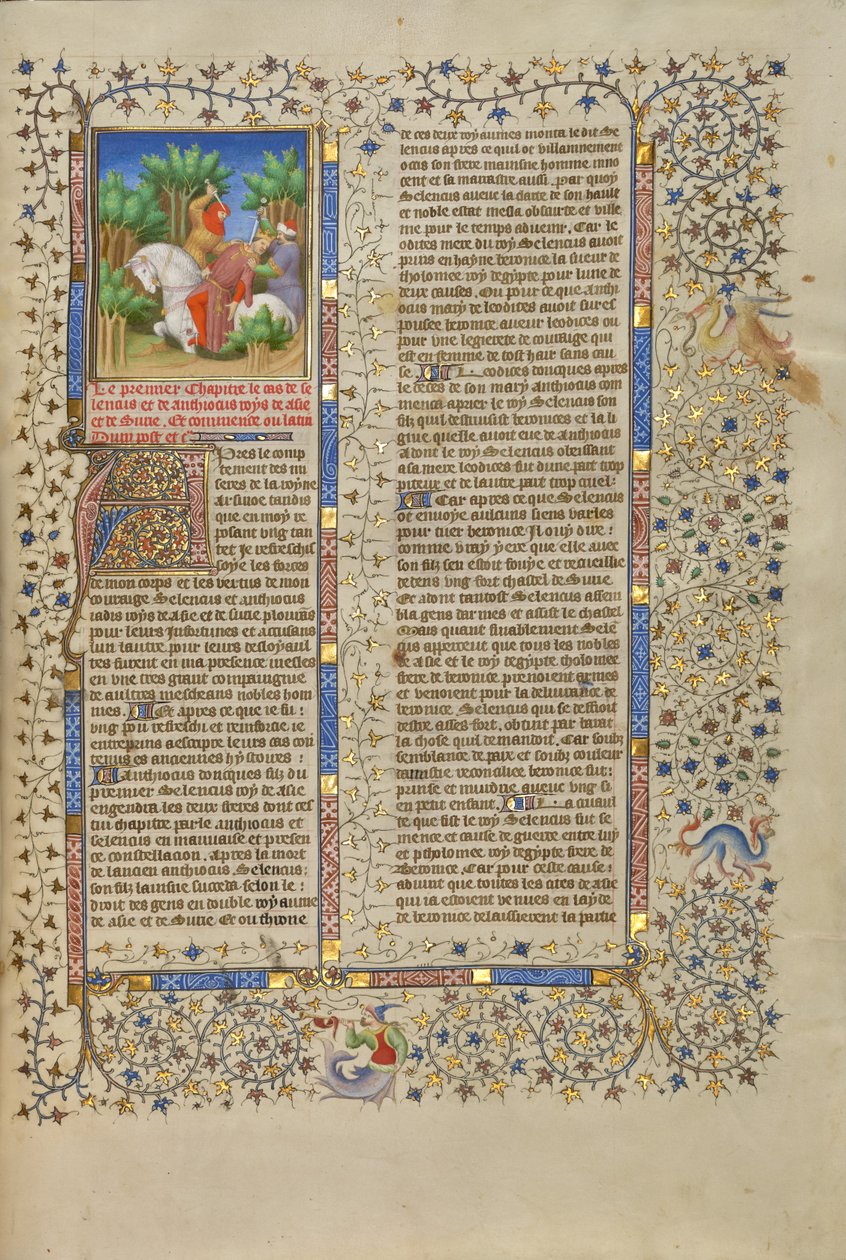 Le premier Chapitre le cas de se
lencus et de Anthiocus roys de asie
et de Surie. Et commence ou latin
Dum post et cͣ
Apres le comp
tement des mi
seres de la royne
Arsinoe tandis
que en moy re
posant ung tan
tet Je refreschis
soye les forces
de mon corps et les vertus de mon
couraige Selencus et anthiocus
iadis roys de asie et de surie plourans
pour leurs Infortunes et accusans
lun lautre pour leurs desloyaul
tes furent en ma presence mesles
en une tres grant compaignie
de aultres mescheans nobles hom
mes. Et apres ce que ie fu
ung pou refreschi et renforcie ie
entreprins a escripre leurs cas con
tenus es anciennes hystoires
Anthiocus doncques filz du
premier Selencus roy de asie
engendra les deux freres dont ces
tui chapitre parle anthiocus et
selencus en mauvaise et presen
ce constellacion. Apres la mort
de lancien anthiocus Selencus
son filz laisne succeda selon le
droit des gens en double royaume
de asie et de Surie Et ou throne
de ces deux royaumes monta le dit Se
lencus apres ce quil ot villainnement
occis son frere mainsne homme inno
cent et sa marrastre aussi. Par quoy
Selencus avecq la clarte de son hault
et noble estat mesla obscurte et ville
nie pour le temps advenir. Car le
odices mere du roy Selencus avoit
prins en hayne beronice la sueur de
tholomee roy degypte pour lune de
deux causes. Ou pour ce que anthi
ocus mary de leodices avoit sures
pousee beronice avecq leodices ou
pour une legierete de couraige qui
est en femme de tost hair sans cau
se. Leodices doncques apres
le deces de son mary anthiocus com
menca a prier le roy Selencus son
filz quil destruisist beronices et la li
gnie quelle avoit eue de anthiocus
adont le roy Selencus obeissant
a sa mere leodices fut dune part trop
piteux et de lautre part trop cruel
Car apres ce que Selencus
ot envoye aulcuns siens varles
pour tuer beronice Il ouy dire
comme vray yere que elle avec
son filz sen estoit fouye et recueillie
dedens ung fort chastel de Surie
Et adont tantost Selencus assem
bla gens darmes et assist le chastel
Mais quant finablement Sele
cus apperceut que tous les nobles
de asie et le roy degypte tholomee
frere de beronice prenoient armes
et venoient pour la delivrance de
beronice. Selencus qui se deffioit
destre asses fort. obtint par barat
la chose quil demandoit. Car soubz
semblance de paix et soubz couleur
damistie reconciliee beronice fut
prinse et murdrie avecq ung si
en petit enfant. La cruaul
te que fist le roy Selencus fut se
mence et cause de guerre entre luy
et ptholomee roy degypte frere de
Beronice. Car pour ceste cause
advint que toutes les cites de asie
qui ia estoient venues en layde
de beronice delaissierent la partie